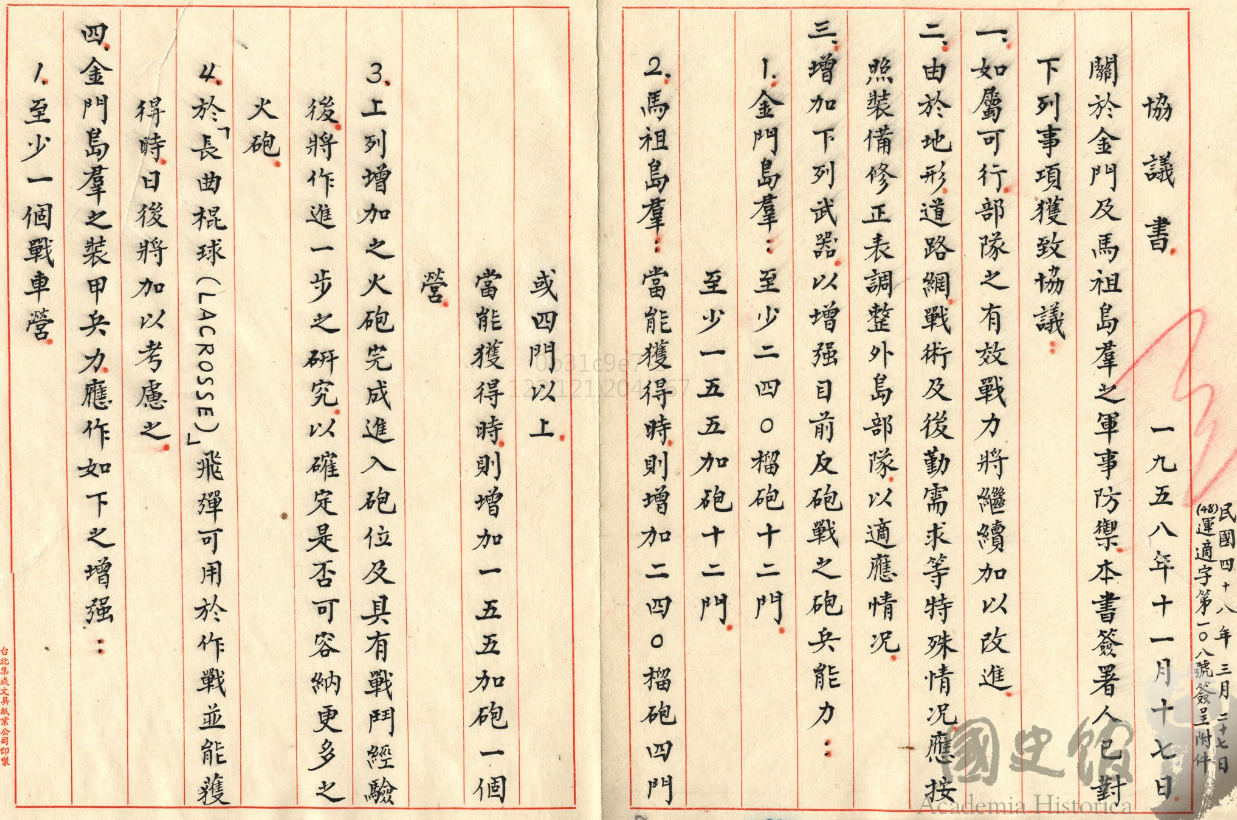 民國四十八年三月二十七日
(48)運適字第一〇八號簽呈附件
協議書 一九五八年十一月十七日.
關於金門及馬祖島羣之軍事防禦.本書簽署人已對
下列事項獲致協議:
一.如屬可行.部隊之有效戰力將繼續加以改進.
二.由於地形.道路網.戰術及後勤需求等特殊情况.應按
照裝備修正表調整外島部隊.以適應情况.
三.增加下列武器.以增强目前反砲戰之砲兵能力:
1.金門島羣:至少二四〇榴砲十二門.
至少一五五加砲十二門.
2.馬祖島羣:當能獲得時.則增加二四〇榴砲四門
或四門以上.
當能獲得時.則增加一五五加砲一個
營.
3.上列增加之火砲完成進入砲位及具有戰鬥經驗
後.將作進一步之研究.以確定是否可容納更多之
火砲.
4.於「長曲棍球(LACROSSE)」飛彈可用於作戰並能獲
得時.日後將加以考慮之.
四.金門島羣之裝甲兵力.應作如下之增强:
1.至少一個戰車營.
台北集成文具紙業公司印製
國史館
Academia Historica